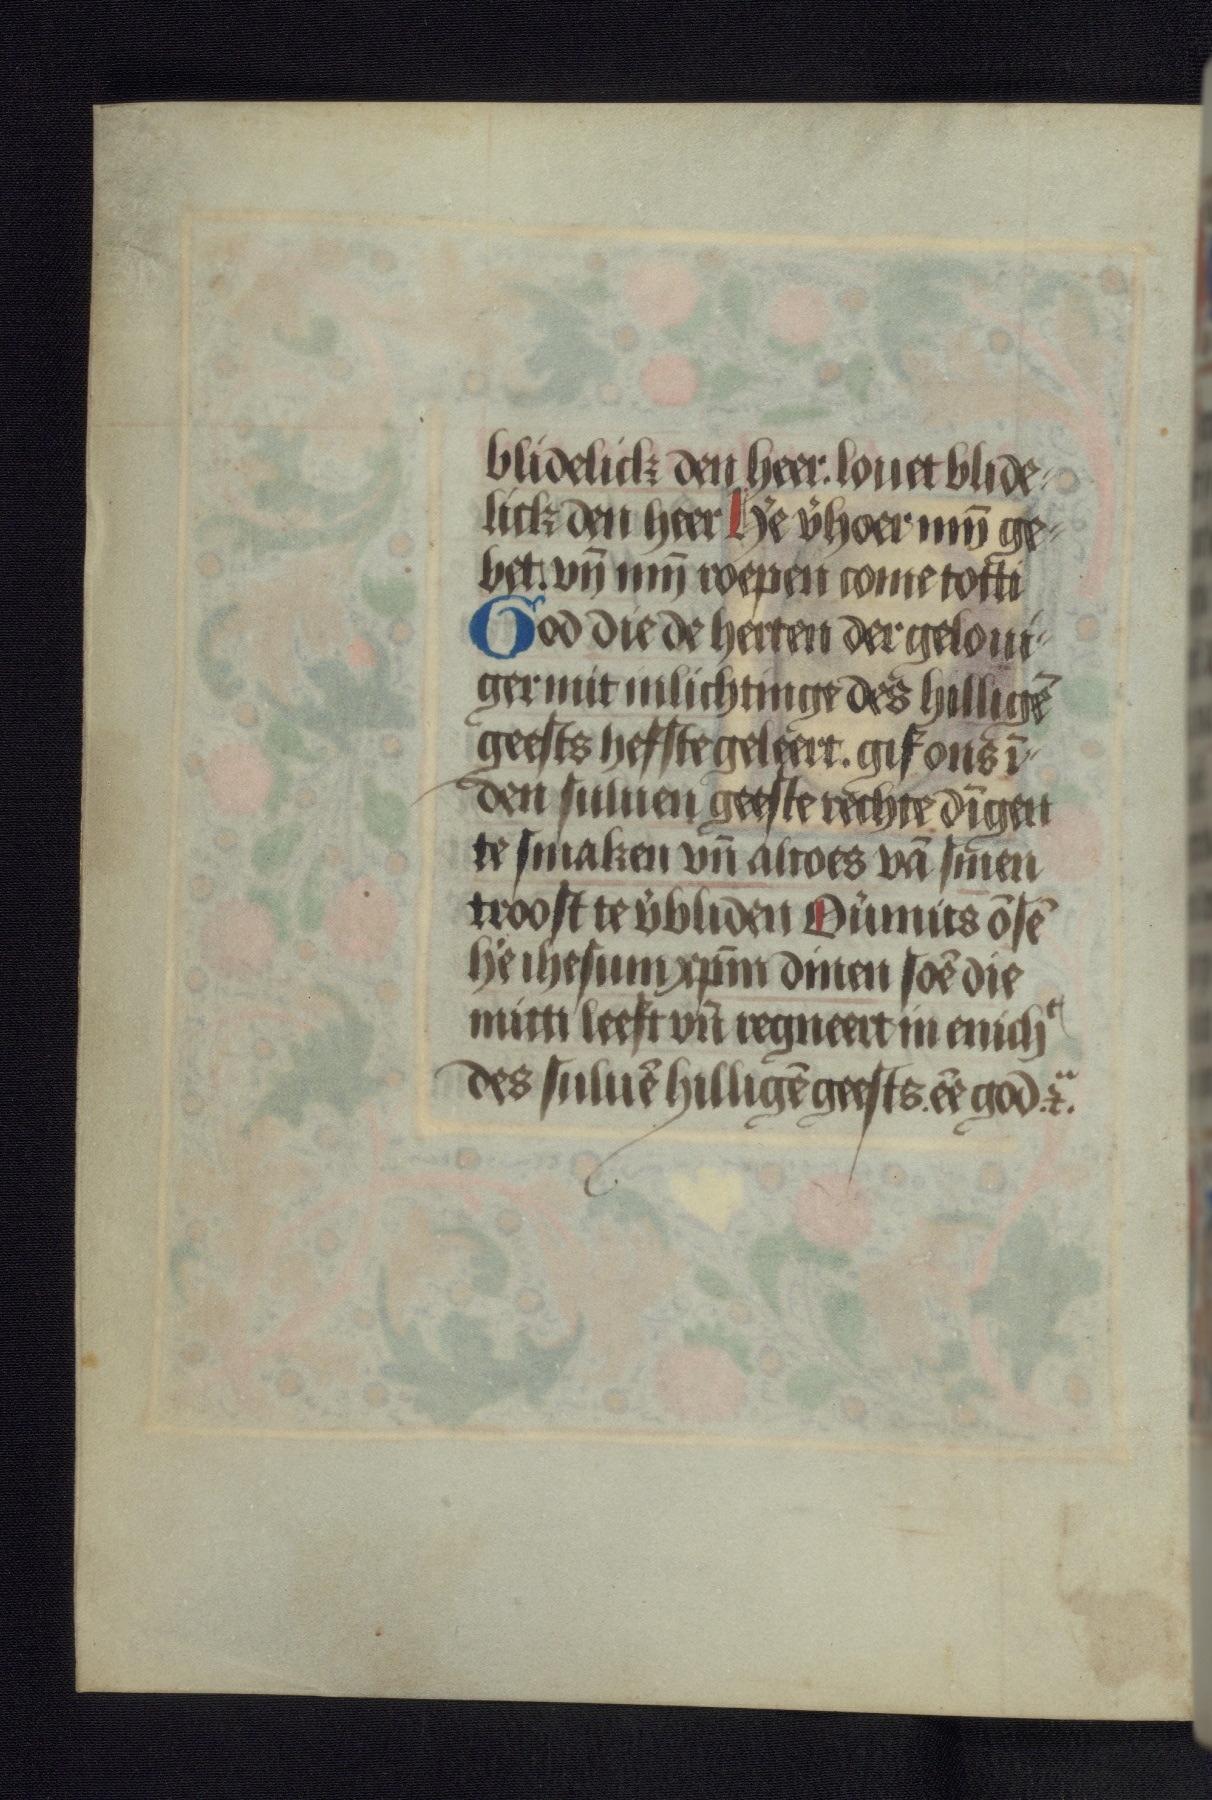 blidelick den heer. louet blide-
lick den heer He v̉hoer myn̄ ge-
bet. vn̄ myn̄ roepen come totti
God die de herten der geloui-
ger mit inlichtinge des hilligē
geests hefste geleert. gif ons ī-
den suluen geeste rechte dīgen
te smaken vn̄ altoes vā sinen
troost te v̉bliden Ouumits ōsē
he ihesum xp̄m dinen soē die
mitti leeft vn̄ regneert in enich
des suluē hilligē geests. eē god.